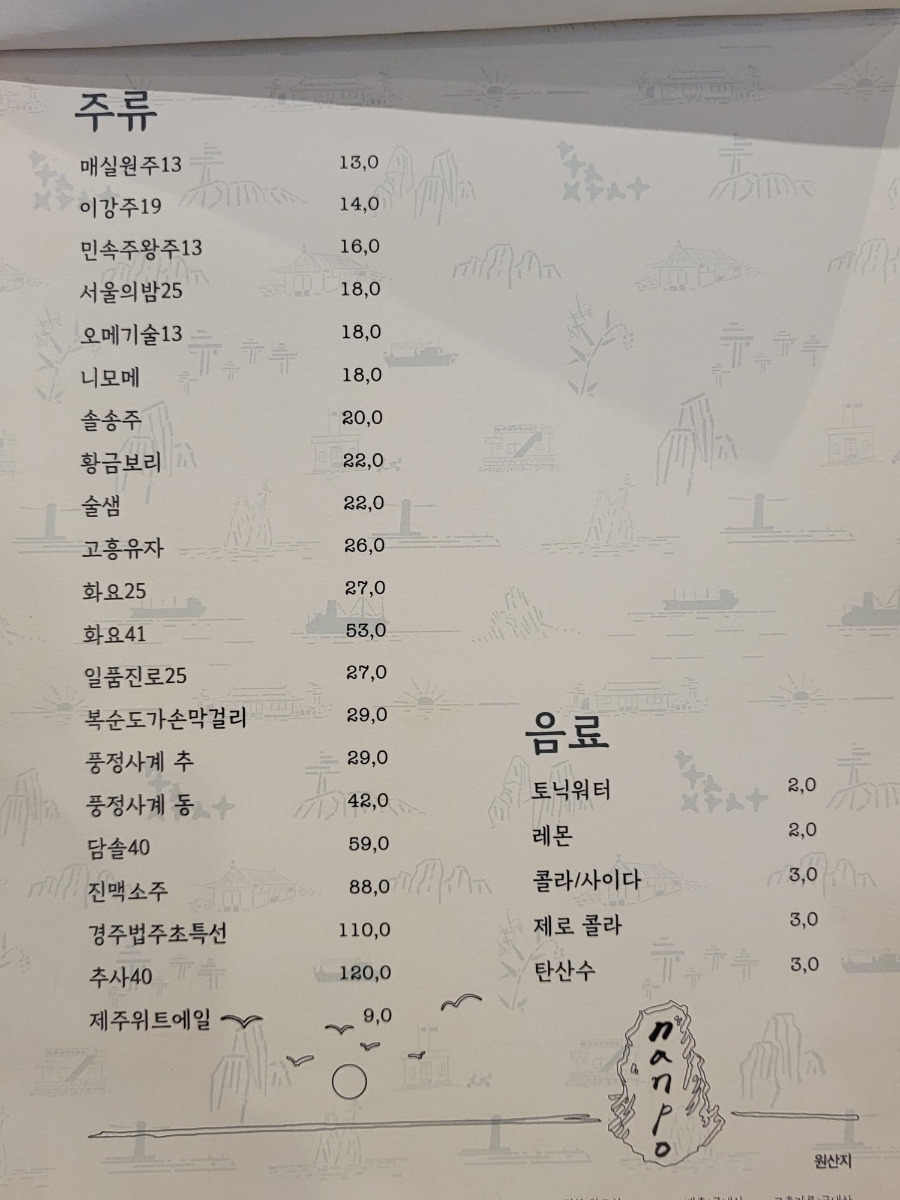 주류
매실원주13 13,0
이강주19 14,0
민속주왕주13 16,0
서울의밤25 18,0
오메기술13 18,0
니모메 18,0
솔송주 20,0
황금보리 22,0
술샘 22,0
고흥유자 26,0
화요25 27,0
화요41 53,0
일품진로25 27,0
복순도가손막걸리 29,0
풍정사계 추 29,0
풍정사계 동 42,0
담솔40 59,0
진맥소주 88,0
경주법주초특선 110,0
추사40 120,0
제주위트에일 9,0
음료
토닉워터 2,0
레몬 2,0
콜라/사이다 3,0
제로 콜라 3,0
탄산수 3,0
nanpo
원산지